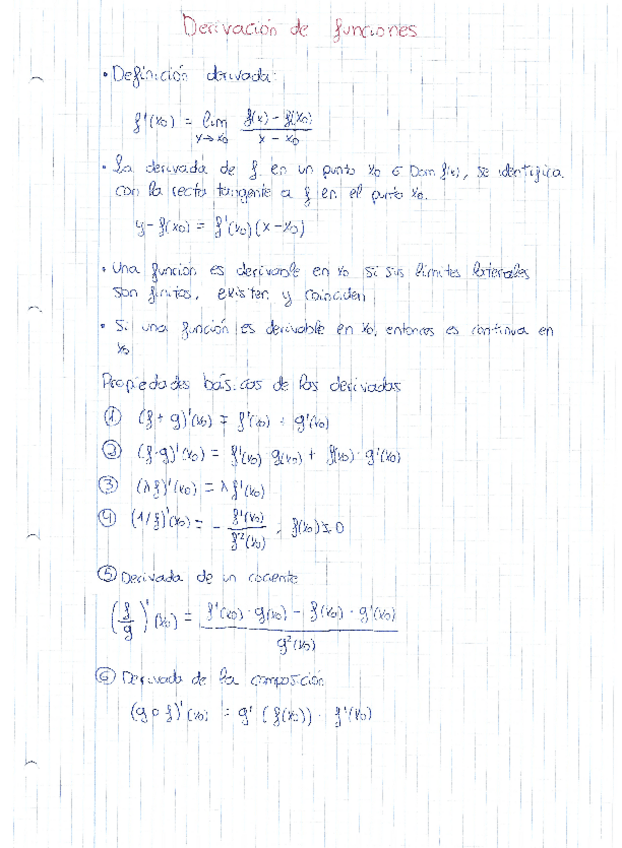 Derivación de funciones
• Definición derivada:
f'(x₀) = lim x→x₀ (f(x) - f(x₀)) / (x - x₀)
• La derivada de f en un punto x₀ ∈ Dom f(x), se identifica
con la recta tangente a f en el punto x₀.
y - f(x₀) = f'(x₀)(x - x₀)
• Una función es derivable en x₀ si sus límites laterales
son finitos, existen y coinciden
• Si una función es derivable en x₀, entonces es continua en
x₀
Propiedades básicas de las derivadas
① (f + g)'(x₀) = f'(x₀) + g'(x₀)
② (f·g)'(x₀) = f'(x₀) g(x₀) + f(x₀)·g'(x₀)
③ (λf)'(x₀) = λf'(x₀)
④ (1/f)'(x₀) = - f'(x₀) / f²(x₀), f(x₀) ≠ 0
⑤ Derivada de un cociente
(f/g)'(x₀) = (f'(x₀)·g(x₀) - f(x₀)·g'(x₀)) / g²(x₀)
⑥ Derivada de la composición
(g∘f)'(x₀) = g'(f(x₀))·f'(x₀)